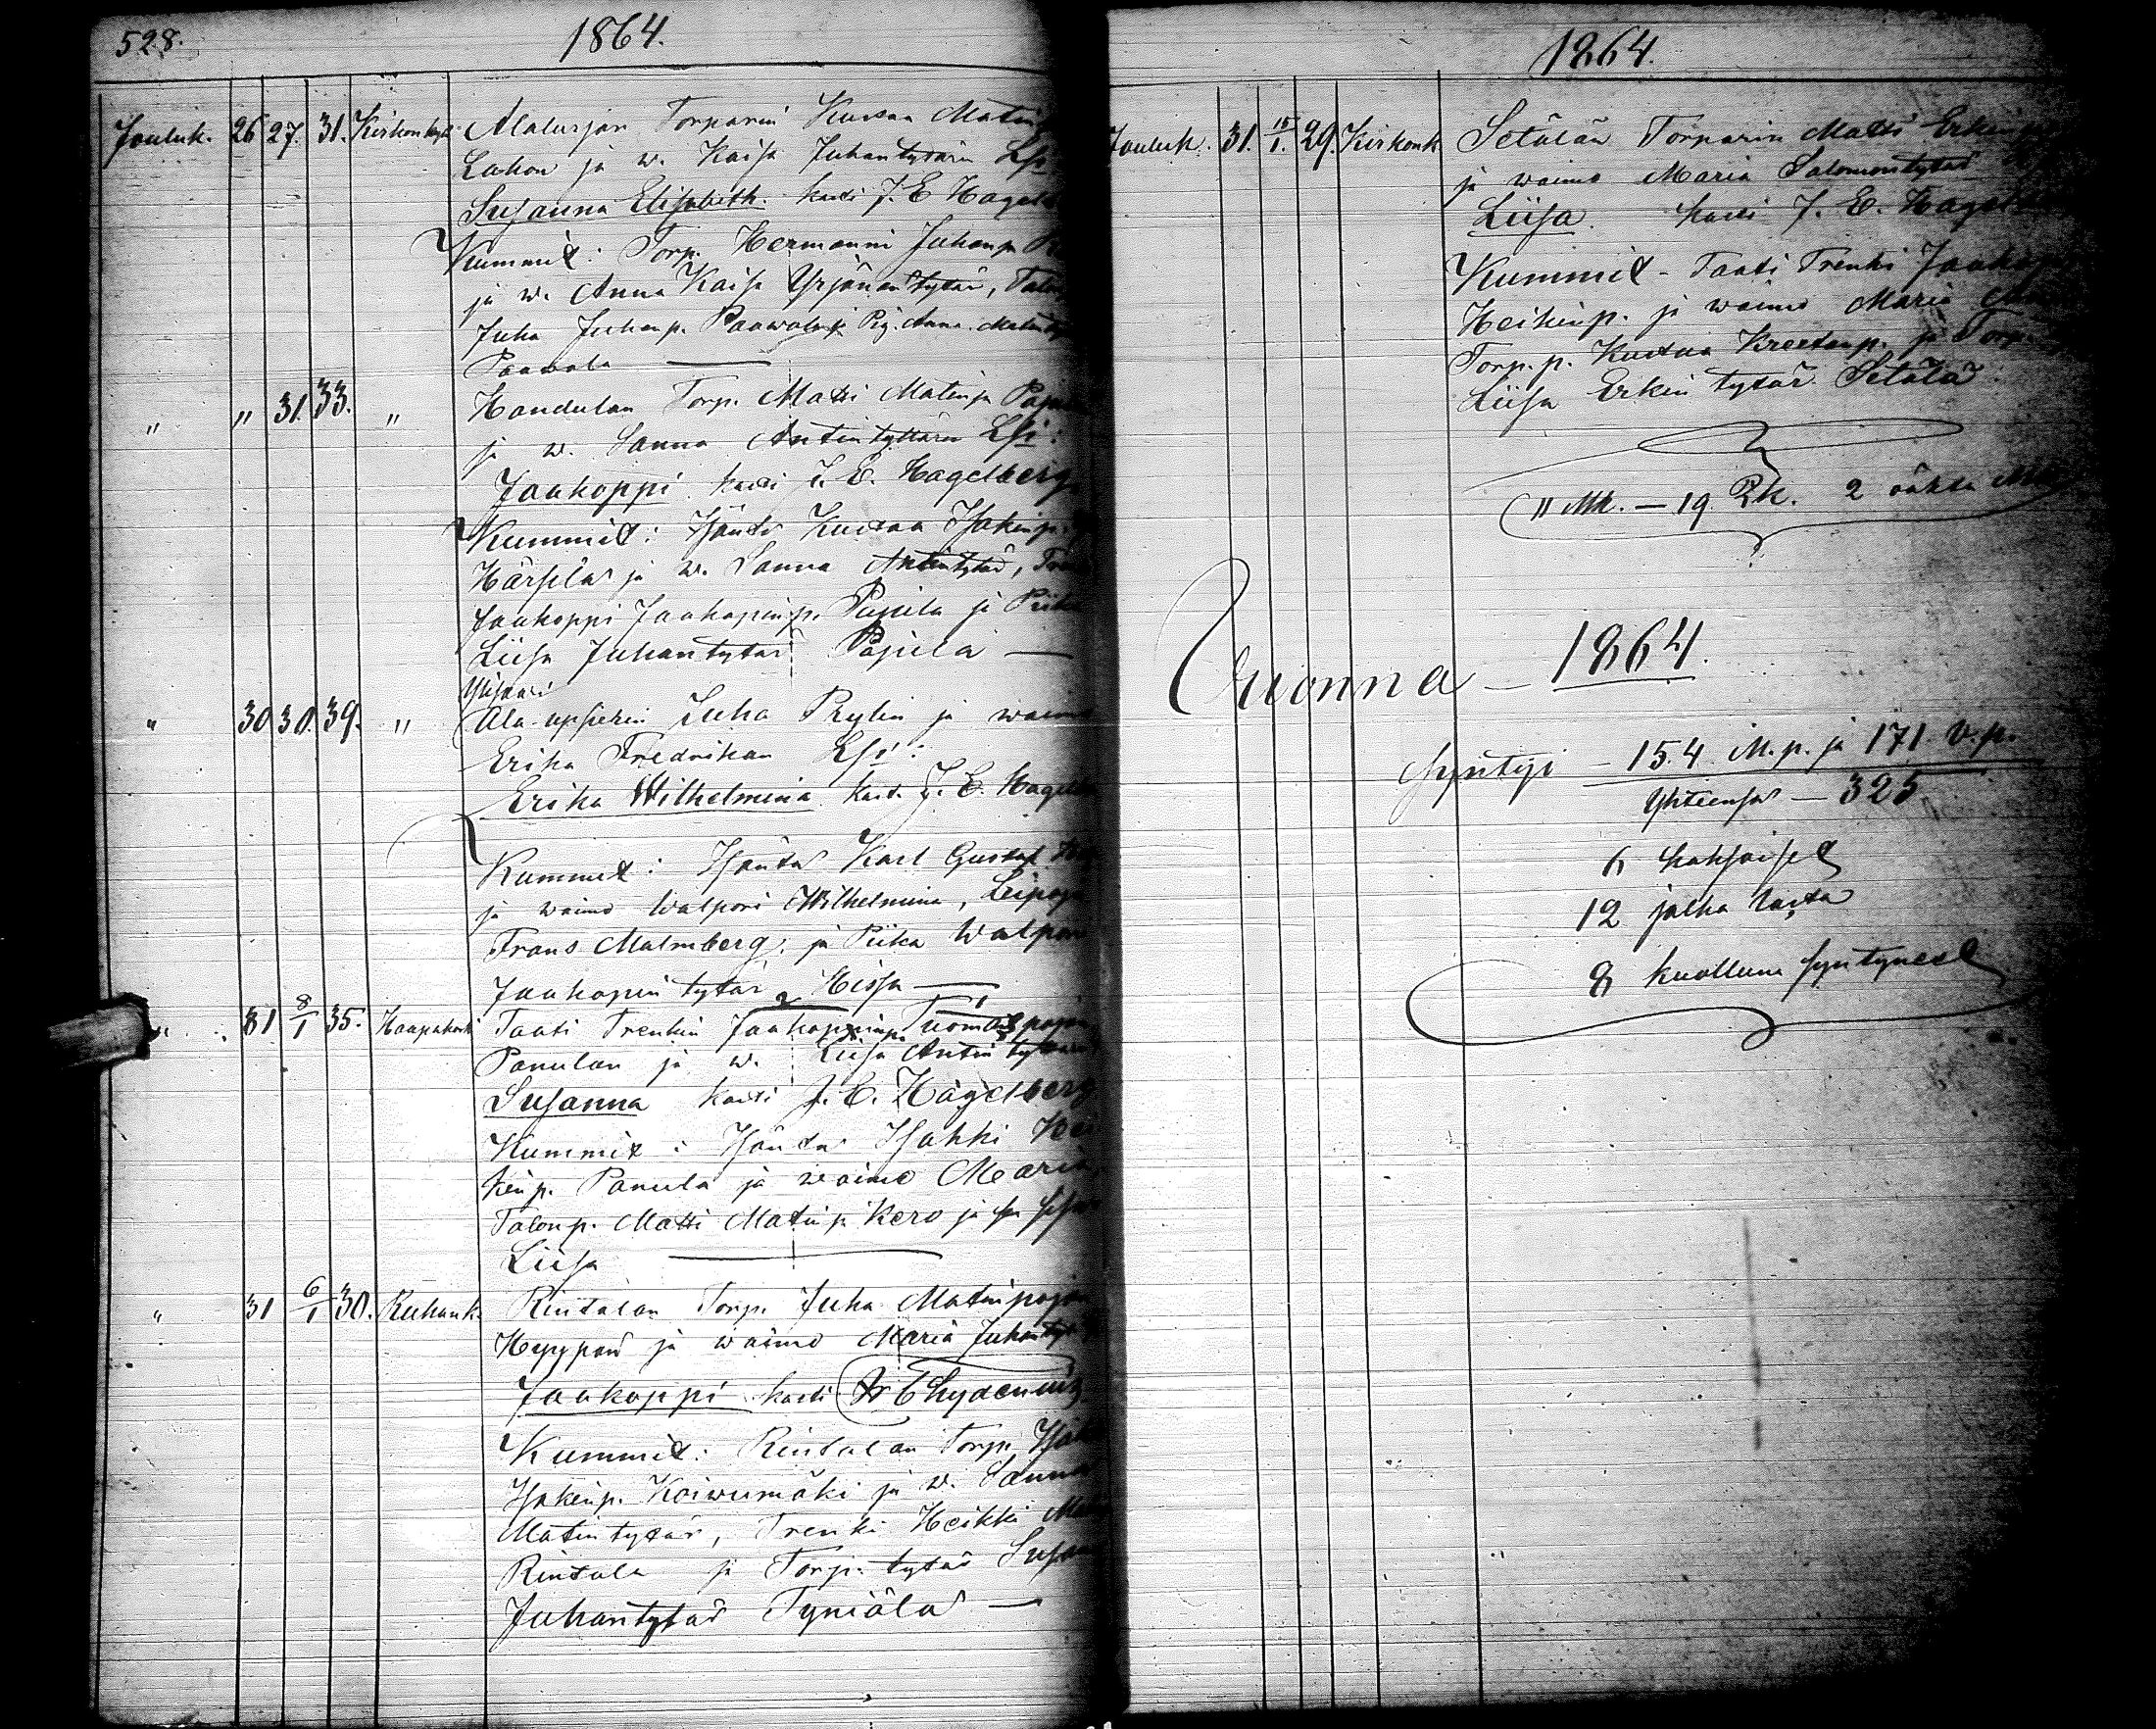 528.
1864.
Jouluk. 26 27. 31. Kirkonkyl. Alalurjan Torparin Kustaa Matinp
Lahon ja w. Kaisa Juhantytärn Lsi:
Susanna Elisabeth. kasti J. E. Hagelb
Kummit: Torp. Hermanni Juhanp.
ja w. Anna Kaisa Yrjönäntytär,
Juha Juhanp. Paawola ja Pig. Anna Matint
Paawola —
" " 31. 33. " Handulan Torp. Matti Matinp.
ja w. Sanna Antintyttären Lsi:
Jaakoppi kasti J. E. Hagelberg
Kummit: Isäntä Kustaa Isakinp.
Härsilä ja w. Sanna Antintytär,
Jaakoppi Jaakopinp. Pajula ja Piika
Liisa Juhantytär Pajula —
Ylistari
" 30 30. 39. " Ala-upsierin Juha Prylin ja waimo
Erika Fredrikan Lsi:
Erika Wilhelmina kast. J. E. Hagelb
Kummit: Isäntä Karl Gustaf
ja waimo Walpori Wilhelmina,
Frans Malmberg, ja Piika Walpori
Jaakopin tytär Hissa —
" 31 8/1 35. Haapakoski Taati Trenkin Jaakoppinp. Tuomaspojan
Panulan ja w. Liisa Antin tytären
Susanna kasti J. E. Hagelberg
Kummit: Isäntä Isakki Hei
kinp. Panula ja waimo Maria,
Talonp. Matti Matinp. Kero ja sen sisar
Liisa —
" 31 6/1 30. Ruhank. Rintalan Torp. Juha Matinpojan
Hyyppän ja waimo Maria Juhantyt
Jaakoppi kasti
Kummit: Rintalan Torp.
Isakinp. Koiwumäki ja w. Sanna
Matintytär, Trenki Heikki
Rintala ja Torp. tytär Susan
Juhantytär Tyniälä —
1864.
Jouluk. 31. 15/1. 29. Kirkonk Setälän Torparin Matti Erkinp
ja waimo Maria Salomontytär
Liisa. kasti J. E. Hagelb
Kummit - Taati Trenki Jaakop
Heikinp. ja waimo Maria
Torp. p. Kustaa Kreetanp. ja Torp.
Liisa Erkin tytär Setälä
11 Mk. — 19 Pk. 2
Wuonna — 1864.
syntyi — 154 M.p. ja 171. v.p.
Yhteensä — 325
6 kaksoiset
12 jalka lasta
8 kuolluna syntyneet